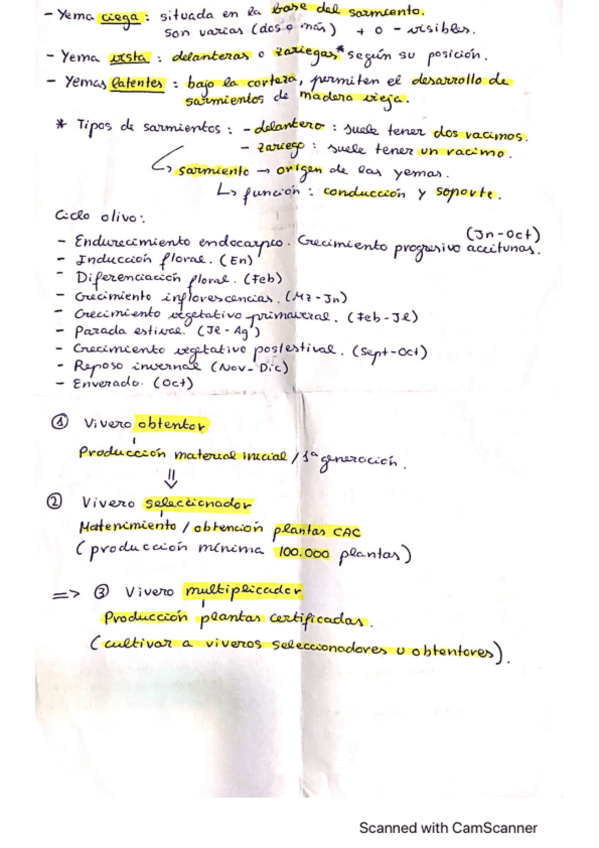 - Yema ciega : situada en la base del sarmiento.
son varias (dos o más) + o - visibles.
- Yema vista : delanteras o zariegas* según su posición.
- Yemas latentes : bajo la corteza, permiten el desarrollo de
sarmientos de madera vieja.
* Tipos de sarmientos : - delantero : suele tener dos vacimos.
- zariego : suele tener un vacimo.
↳ sarmiento → origen de las yemas.
↳ función : conducción y soporte.
Ciclo olivo :
(Jn-Oct)
- Endurecimiento endocarpio. Crecimiento progresivo aceitunas.
- Inducción floral. (En)
- Diferenciación floral. (Feb)
- Crecimiento inflorescencias. (Mz-Jn)
- Crecimiento vegetativo primaveral. (Feb-Jl)
- Parada estival. (Jl-Ag)
- Crecimiento vegetativo postestival. (Sept-Oct)
- Reposo invernal (Nov-Dic)
- Enverado. (Oct)
① Vivero obtentor
Producción material inicial / 1ª generación.
⇓
② Vivero seleccionador
Matenimiento / obtención plantas CAC
(producción mínima 100.000 plantas)
=> ③ Vivero multiplicador
Producción plantas certificadas.
(cultivar a viveros seleccionadores u obtentores).
Scanned with CamScanner